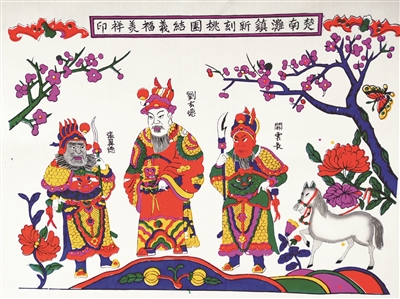 楚南灘鎮新刻桃園結義福美祥印
關雲長
劉玄德
張翼德